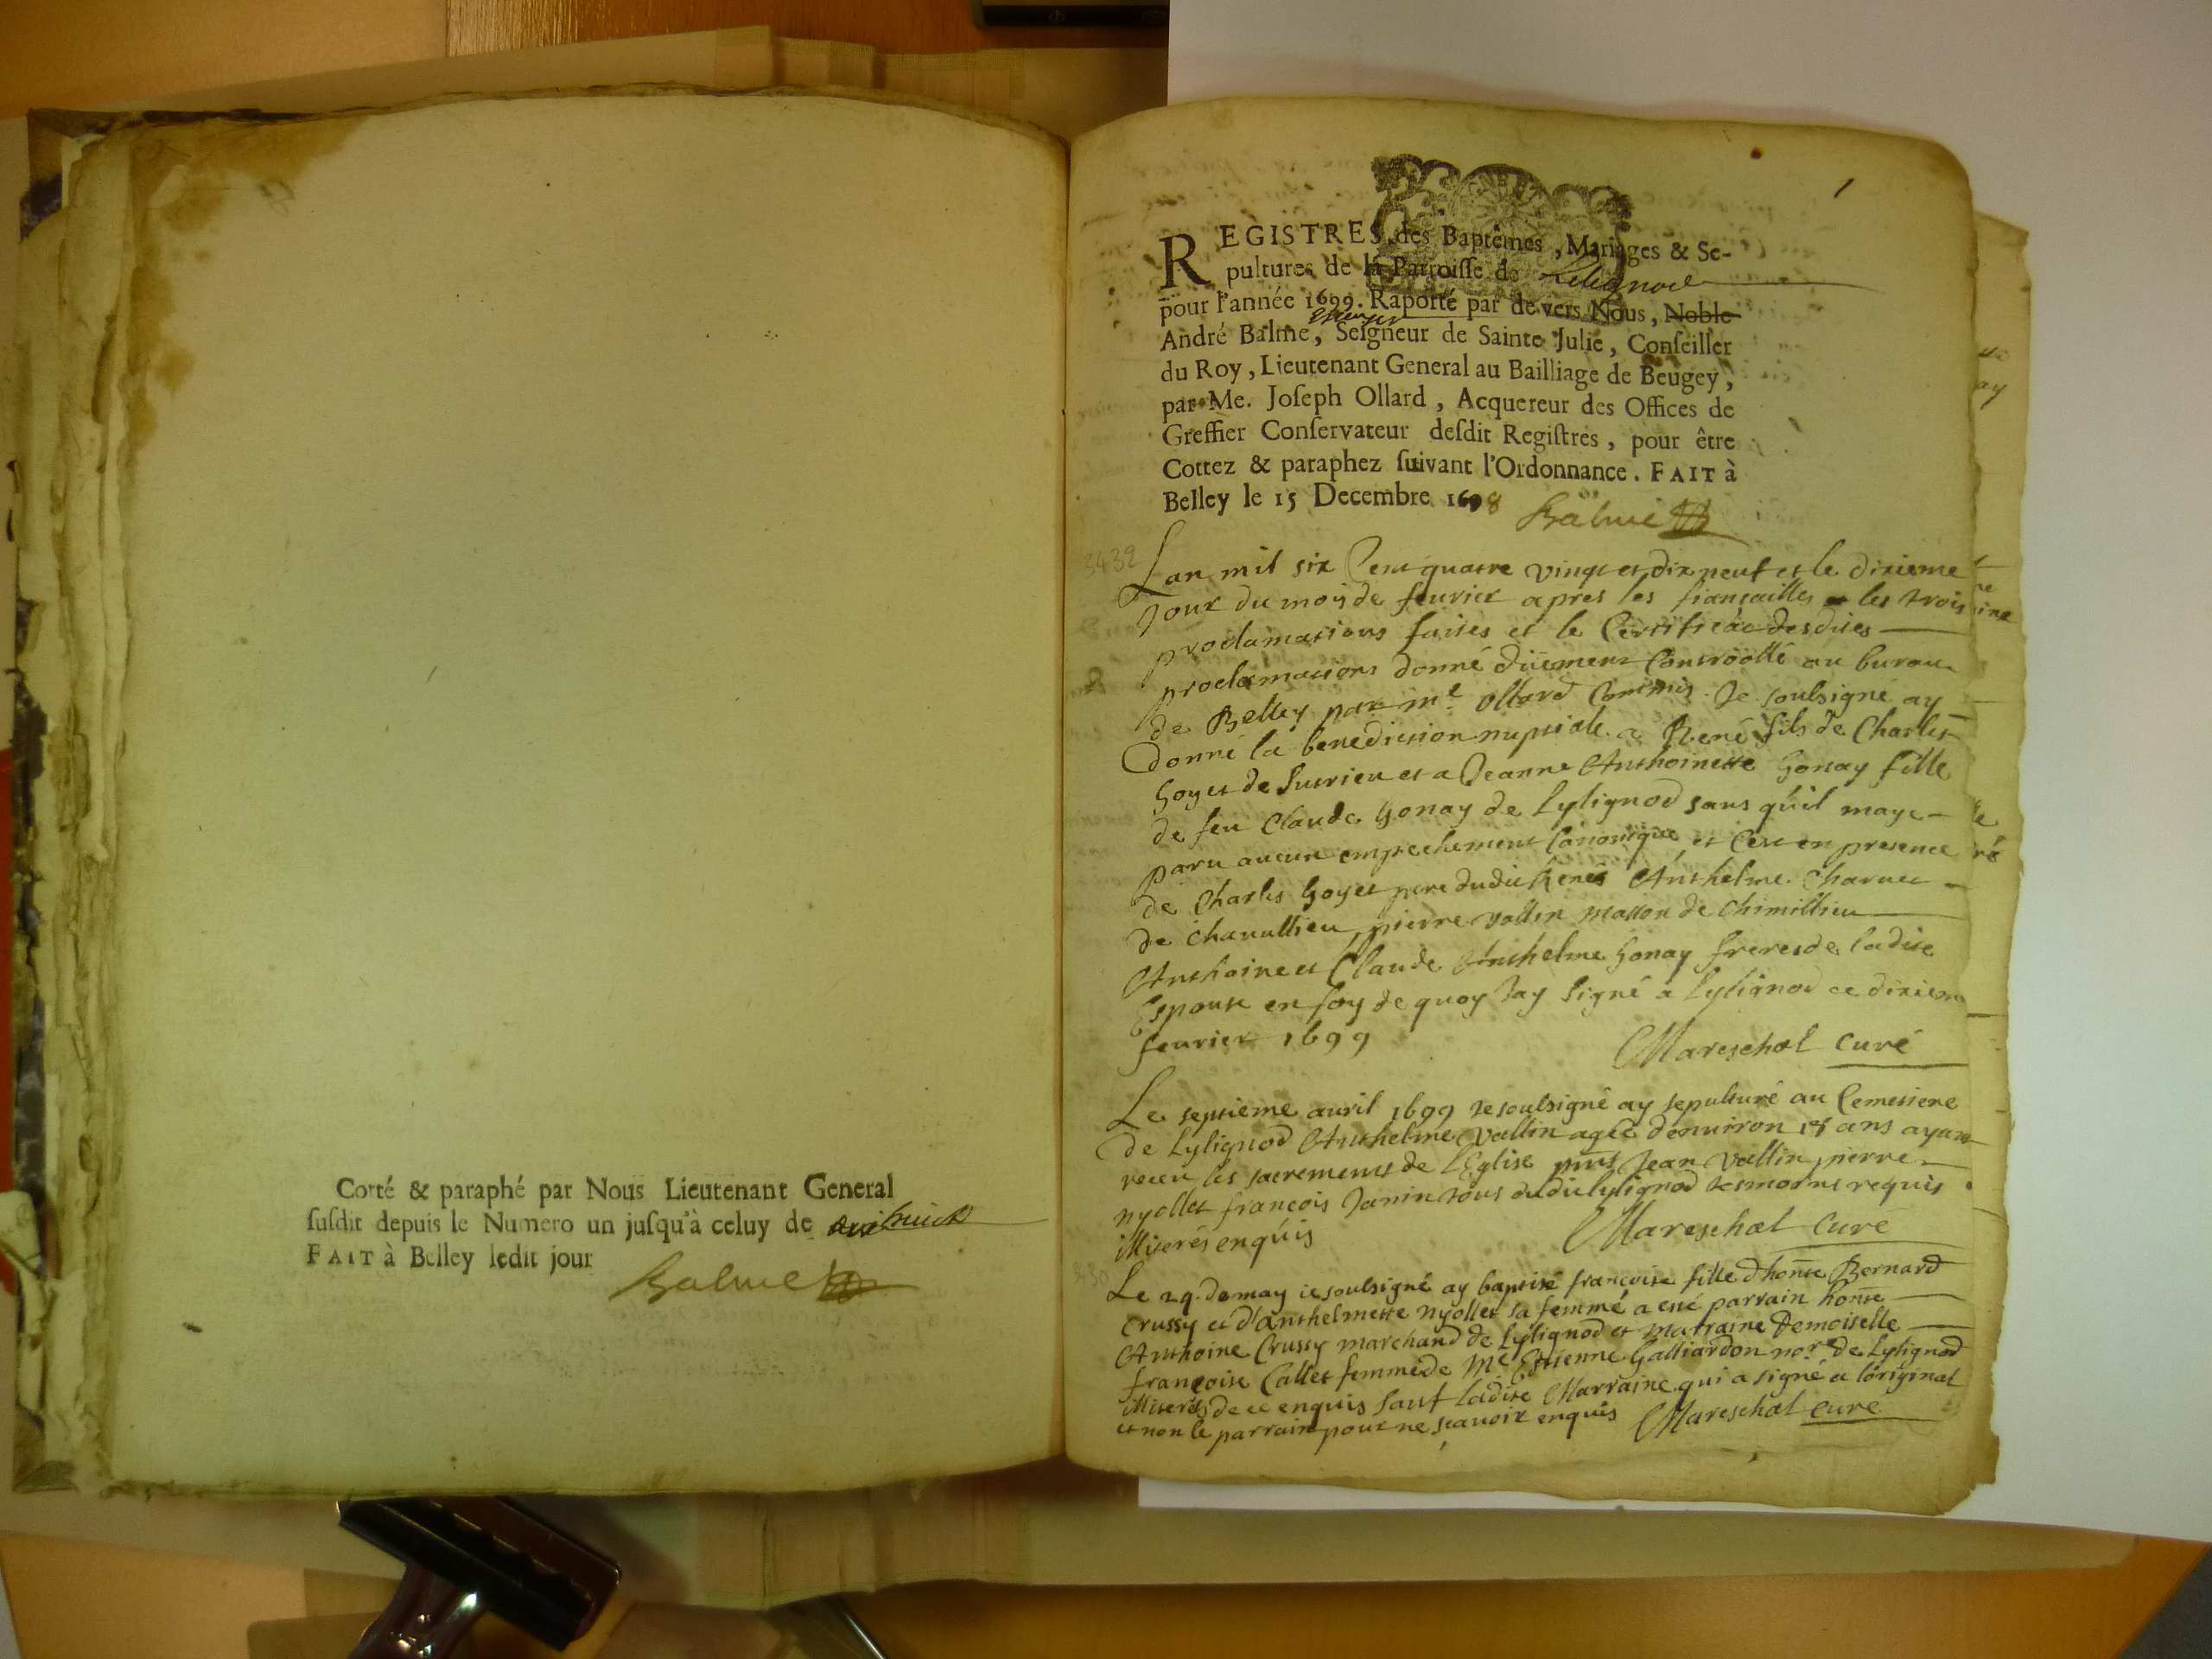 Cotté & paraphé par Nous Lieutenant General
susdit depuis le Numero un jusqu'à celuy de
FAIT à Belley ledit jour
Balme
1
REGISTRES des Baptêmes, Mariages & Se-
pultures de la Parroisse de Lilignod
pour l'année 1699. Raporté par devers Nous, Noble
escuyer
André Balme, Seigneur de Sainte Julie, Conseiller
du Roy, Lieutenant General au Bailliage de Beugey,
par Me. Joseph Ollard, Acquereur des Offices de
Greffier Conservateur desdit Registres, pour être
Cottez & paraphez suivant l'Ordonnance. FAIT à
Belley le 15 Decembre 1698
Balme
3432
Lan mil six Cent quatre vingt et dix neuf et le dixieme
Jour du mois de feurier apres les fiansailles et les trois
proclamations faites et le Certificat desdites
proclamations donné düement Controollé au bureau
de Belley par me ollard Commis Je soubsigné ay
donné la benediction nuptiale a René fils de Charles
Goyet de Sutrieu et a Jeanne Anthoinette Gonay fille
de feu Claude Gonay de Lylignod sans qu'il maye
paru aucun empechement Canonique et Cest en presence
de Charles Goyet pere dudit René Anthelme Charuet
de Chauillieu, pierre vallin masson de Chimillieu
Anthoine et Claude Anthelme Gonay freres de ladite
Espouse en foy de quoy Jay signé a Lylignod ce dixiem
feurier 1699
Mareschal curé
Le septieme auril 1699 Je soubsigné ay sepulturé au Cemetiere
de Lylignod Anthelme Vallin agée denuiron 15 ans ayant
receu les sacrements de l'Eglise pnts Jean Vallin pierre
nyollet françois Janin tous dudit lylignod tesmoins requis
illiterés enquis
Mareschal Curé
Le 29. de may ie soubsigné ay baptisé françoise fille d'honte Bernard
Crussy et d'anthelmette nyollet sa femme, a esté parrain honte
Anthoine Crussy marchand de Lylignod et marraine Demoiselle
françoise Callet femme de Me Estienne Galliardon nore de Lylignod
illiterés de ce enquis sauf ladite Marraine qui a signé a loriginal
et non le parrain pour ne scauoir enquis
Mareschal curé